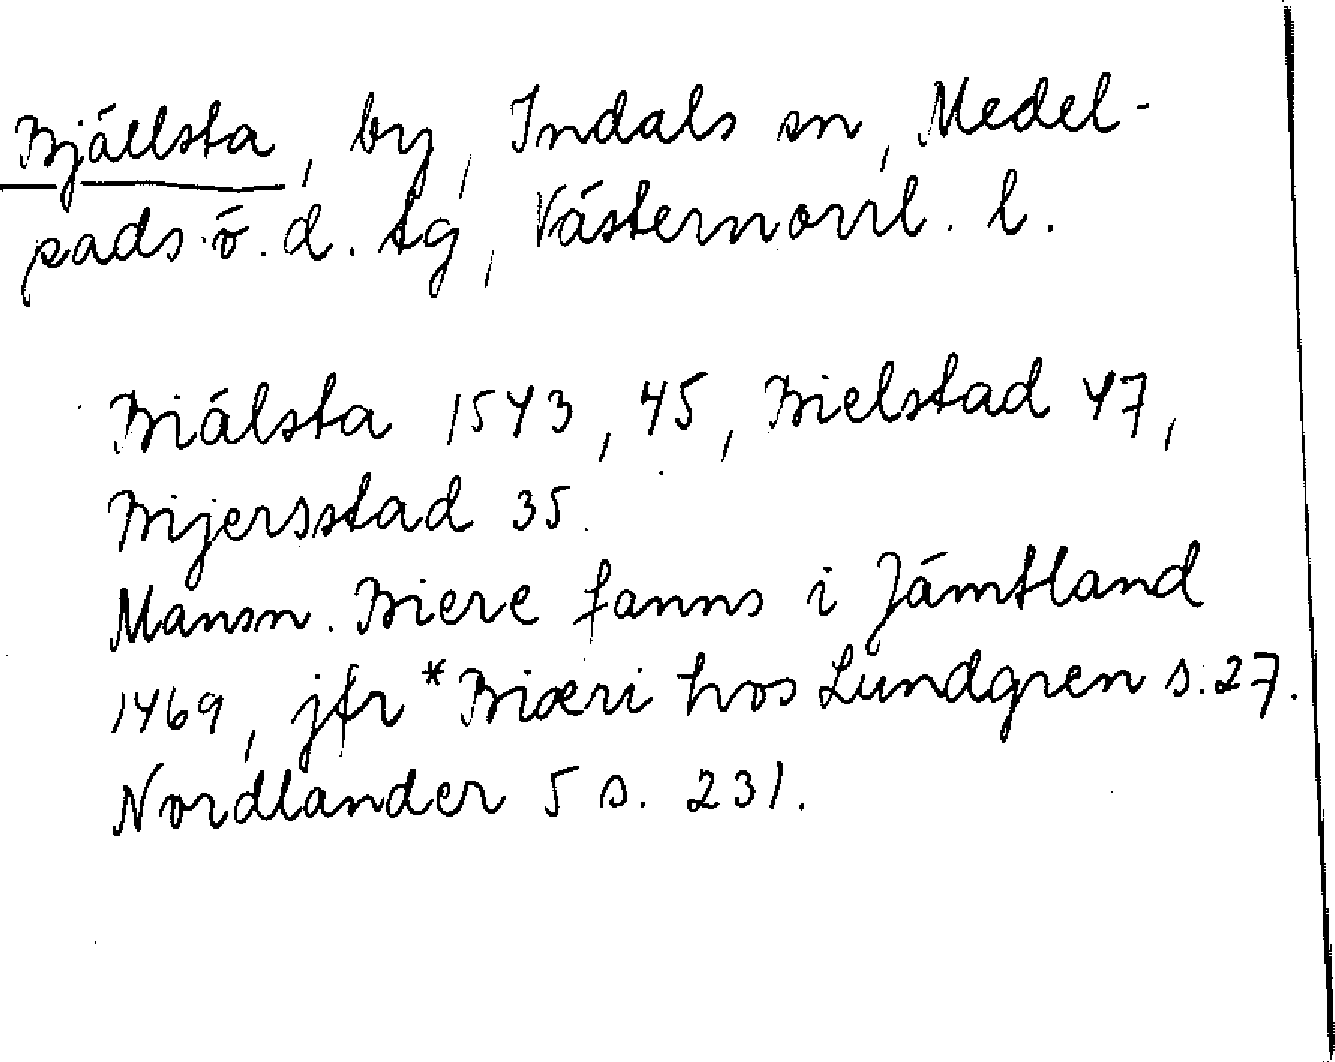 Bjällsta, by, Indals sn, Medel-
pads ö. d. tg, Västernorrl. l.
Biälsta 1543, 45, Bielstad 47,
Bijersstad 35.
Mansn. Biere fanns i Jämtland
1469, jfr *Biæri hos Lundgren s. 27.
Nordlander 5 s. 231.